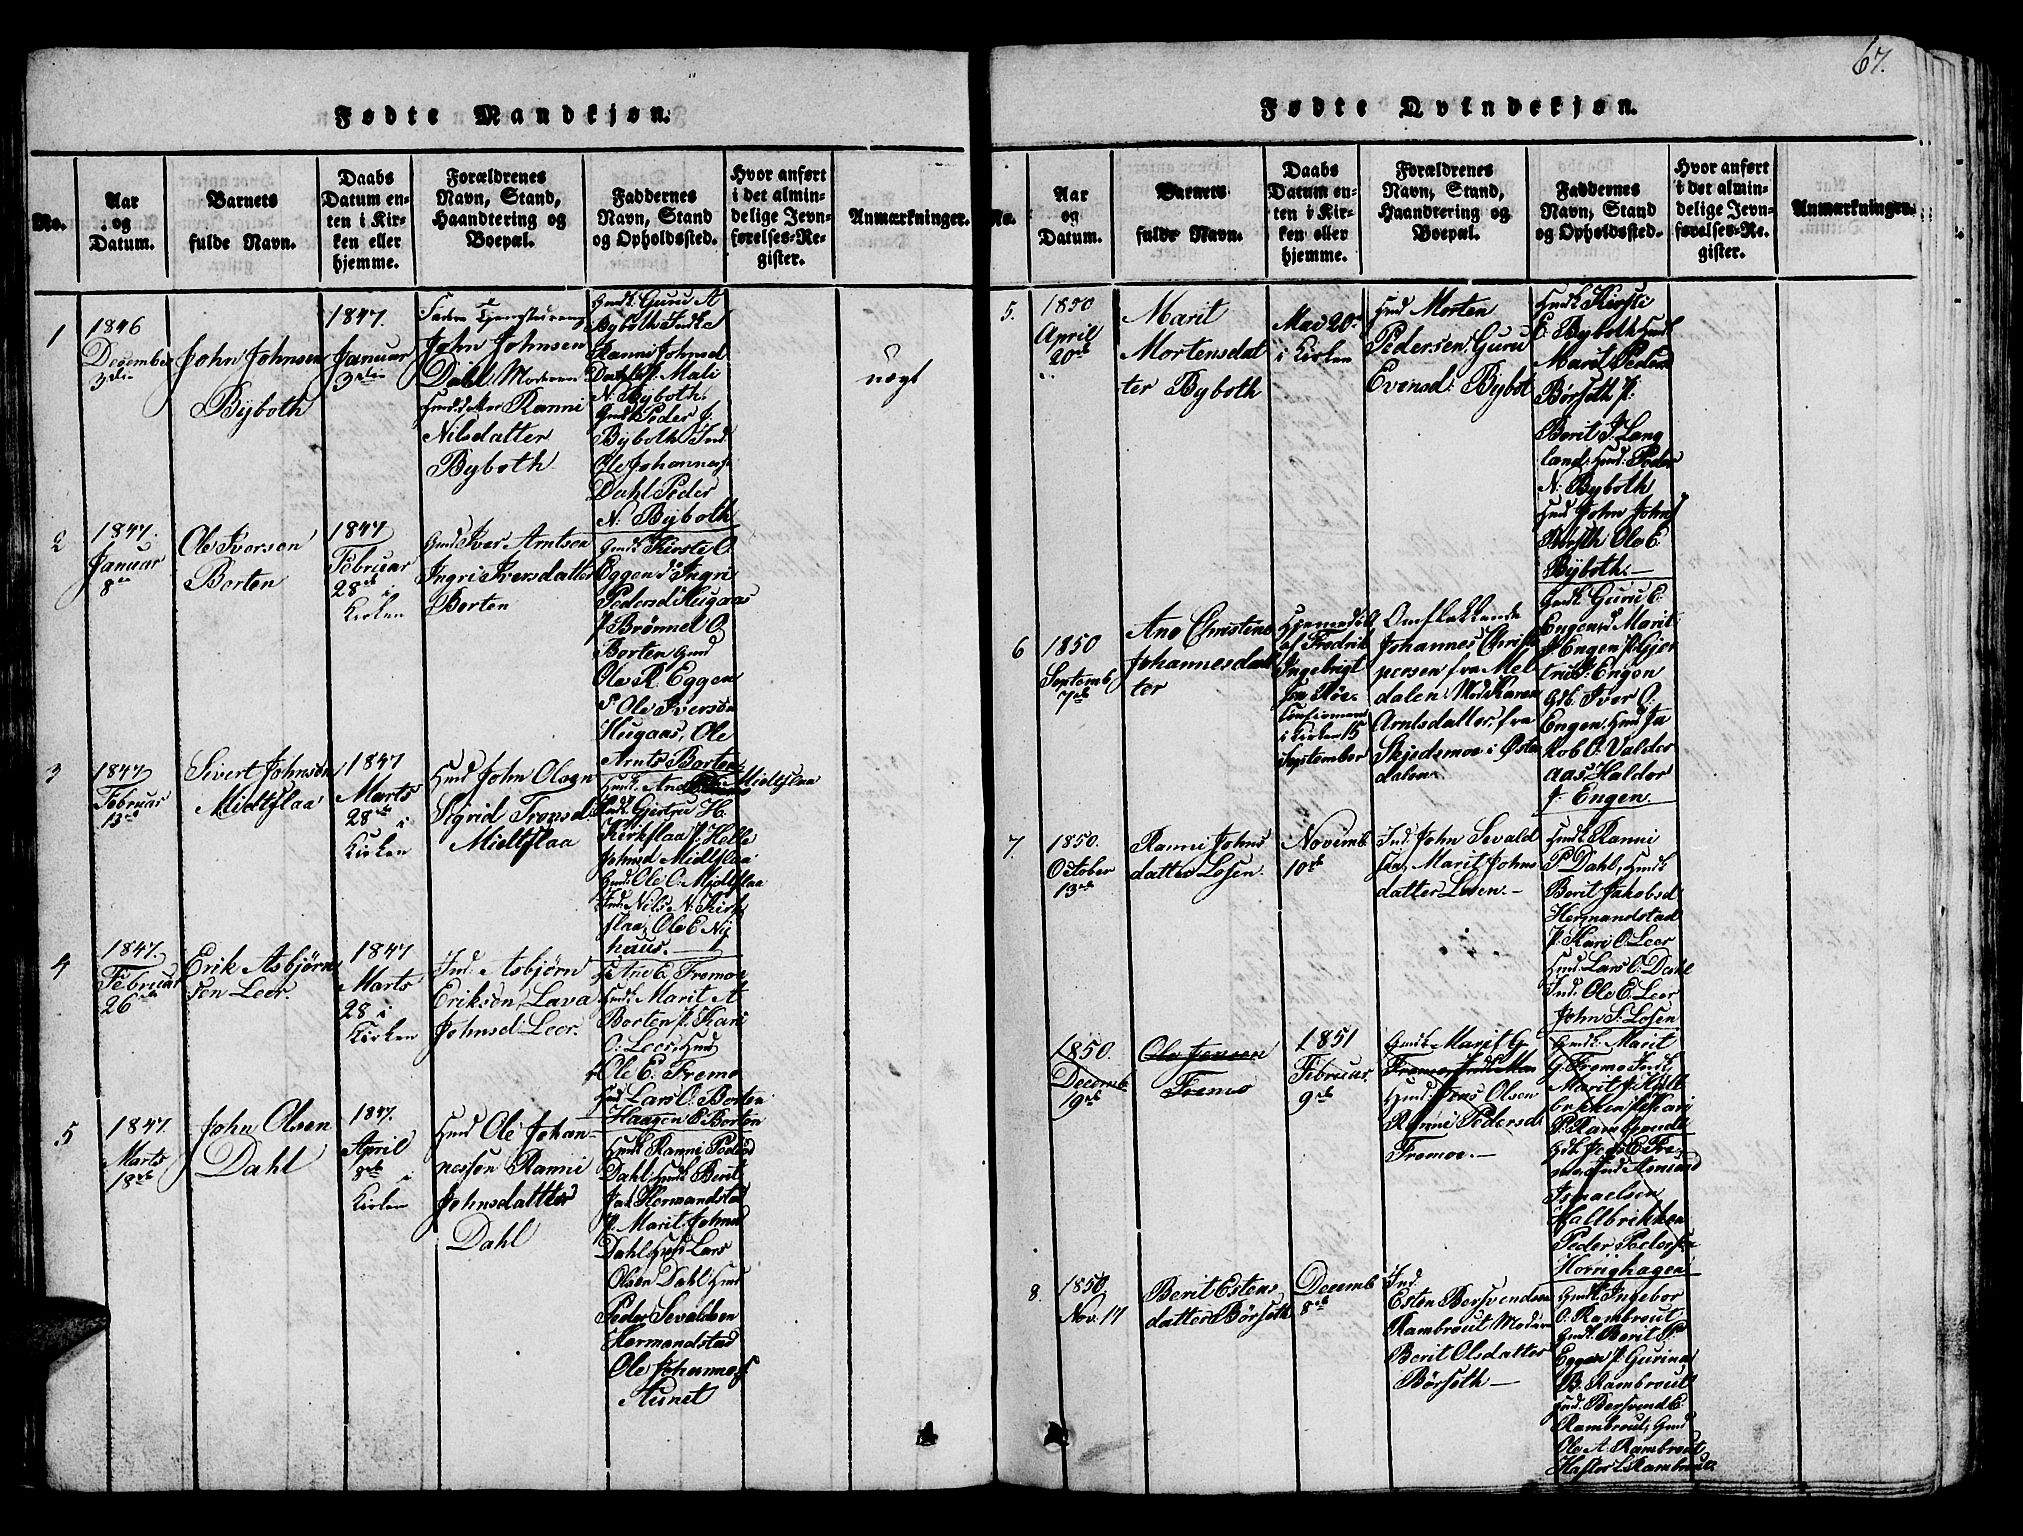 67.
Fødte Mandkjøn.
No.
Aar
og
Datum.
Barnets
fulde Navn.
Daabs
Datum en-
ten i Kir-
ken eller
hjemme.
Forældrenes
Navn, Stand,
Haandtering og
Boepæl.
Faddernes
Navn, Stand
og Opholdssted.
Hvor anført
i det almin-
delige Jevn-
førelses-Re-
gister.
Anmærkninger.
1
1846
December
3die
John Johnsen
Byboth
1847.
Januar
3die
John Johnsen
Dahl. Moderen
Ranni
Nilsdatter
Byboth
Gmdk. Guru A
Byboth Indk
Ranni Johnsd
Dahl P. Mali
N. Byboth.
Gmdk Peder J.
Byboth Ind
Ole Johannes
Dahl Peder
N. Byboth
uægt
2
1847.
Januar
8de
Ole Iversen
Borten
1847
Februar
28de i
Kirken
Gmd Iver Arntsen
Ingri Iversdatter
Borten
Gmdk Kirste O.
Eggen do Ingri
Pedersd Hugaas
P Brønnel O.
Borten Gmd
Ole R. Eggen
do Ole Iversen
Hugaas, Ole
Arnts Borten
3
1847
Februar
13de
Sivert Johnsen
Midtflaa
1847
Marts
28de i
Kirken
Hmd John Olsen
Sigrid Tronsd.
Midtflaa
Midtflaa
Gjertru H.
Kirkflaa P. Helle
Johnsd Midtflaa
Gmd. Ole O. Midtflaa
Ind. Nils N. Kirk
flaa, Ole E. Ny
haus.
4
1847.
Februar
26de
Erik Asbjørn
sen Leer.
1847
Marts
28 i
Kirken
Ind. Asbjørn
Eriksen, Lava
Johnsd. Leer.
Ane E. Fremo
Hmdk. Marit A.
Borten P. Kari
O. Leer, Hmd
Ole E. Fremo
Hmd Lars O. Borten
Haagen E. Borten
5
1847.
Marts
18de
John Olsen
Dahl
1847.
April
8de i
Kirken
Hmd Ole Johan-
nessen Ranni
Johnsdatter
Dahl
Hmdk Ranni Pedersd
Dahl Hmdk Berit
Jak Hermandstad
P. Marit Johnsd
Dahl Hmd Lars
Olsen Dahl Hmd
Peder Sevaldsen
Hermandstad
Ole Johannes
Aunet
Fødte Qvindekjøn.
No.
Aar
og
Datum.
Barnets
fulde Navn.
Daabs
Datum en-
ten i Kir-
ken eller
hjemme.
Forældrenes
Navn, Stand,
Haandtering og
Boepæl.
Faddernes
Navn, Stand
og Opholdssted.
Hvor anført
i det almin-
delige Jevn-
førelses-Re-
gister.
Anmærkninger.
5.
1850
April
20de
Marit
Mortensdat
ter Byboth
Mai 20de
i Kirken
Hmd Morten
Pedersen, Guru
Evensd: Bybot
Hmdk Kirsti
E. Byboth Hmdk
Marit Peders
Børseth P:
Berit J. Lang
land, Hmd: Peder
N. Byboth
Hmd John Johns
Børseth Ole E.
Byboth.
6
1850
Septemb.
7de
Ane Christine
Johannesdat
ter
Hjemmedøbt
af Fredrik
Ingebrigt
sen Røe
i Kirken 15
September
Omflakkende
Johannes Christ
persen fra Mel
dalen, Mod Karen
Arntsdatter, fra
Skjedsmoe i Øster
dalen
Gmdk. Guru E.
Engen, Marit
Engen P. Gjer
trud J. Engen
Iver O.
Engen, Hmd Ja
kob O. Valder
aas, Haldor
J. Engen
7.
1850.
October
13de
Ranni Johns
datter Losen.
Novemb
10de
Ind. John Sevald
sen, Marit Johns
datter Losen.
Hmdk Ranni
P Dahl, Hmdk
Berit Jakobsd
Hermandstad
P. Kari O. Leer
Hmd: Lars O. Dahl
Ind. Ole E. Leer
John S. Losen
1850.
Decemb.
19de
Ole Jensen
Fremo
1851
Februar
9de
Gmdk Marit G
Hmd: Jens Olsen
Ranni Pedersd:
Fremoe.
Gmdk: Marit
G. Fremo Indk
Marit J. Hall
brikken P. Kari
P. Rambraudt
Jens E. Fre-
Ismaelsen
Hallbrikken
Peder Pedersen
Horrighagen
8.
1850
Nov. 17
Berit Estens
datter Børseth
Decemb
8de
Ind.
Esten Bersvendsen
Rambrout Moder
Berit Olsdatter
Børseth
Gmdk Ingebor
O. Rambrout
Gmdk Berit P.
Eggen P. Gurina
B. Rambrout
Ind. Bersvend E.
Rambrout, Gmd
Ole A. Rambrout
Haftor L Rambrout.